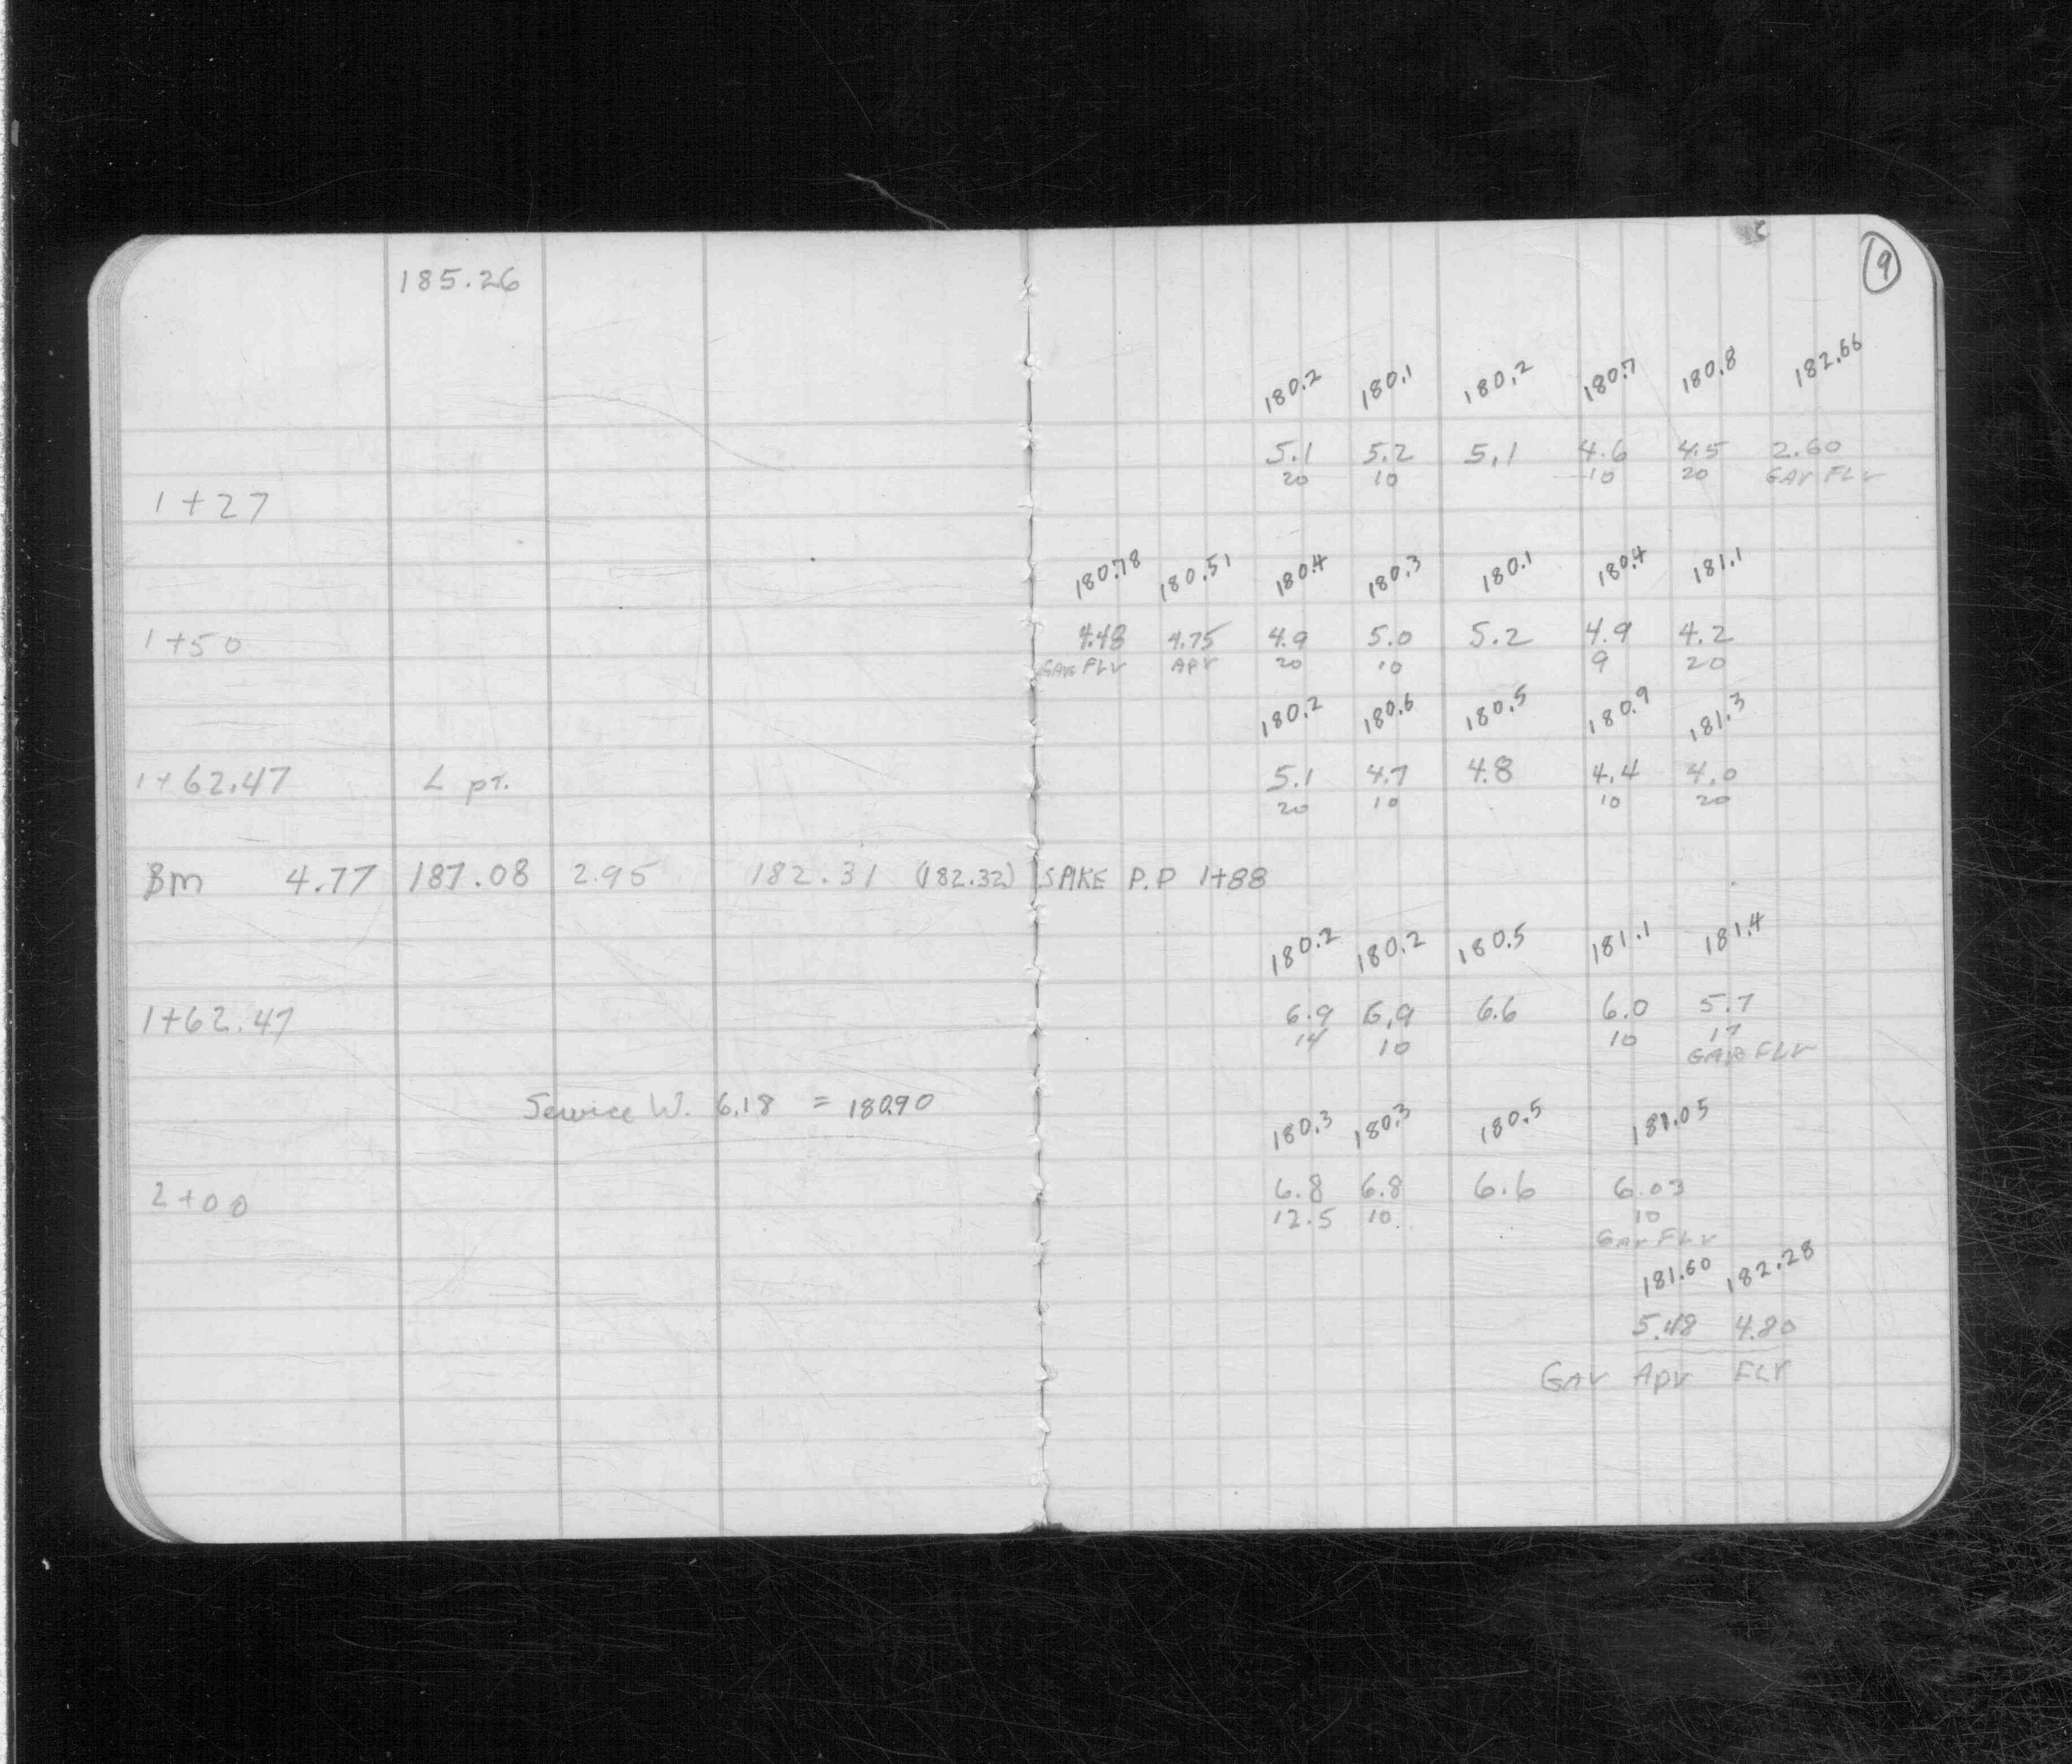 185.26
9
180.2 180.1 180.2 180.7 180.8 182.66
5.1 5.2 5.1 4.6 4.5 2.60
20 10 10 20 GAr FLr
1+27
180.78 180.51 180.4 180.3 180.1 180.4 181.1
1+50 4.48 4.75 4.9 5.0 5.2 4.9 4.2
GAr FLr Apr 20 10 9 20
180.2 180.6 180.5 180.9 181.3
1+62.47 L pt. 5.1 4.7 4.8 4.4 4.0
20 10 10 20
Bm 4.77 187.08 2.95 182.31 (182.32) SPIKE P.P 1+88
180.2 180.2 180.5 181.1 181.4
1+62.47 6.9 6.9 6.6 6.0 5.7
14 10 10 17
GAr FLr
Service W. 6.18 = 180.90
180.3 180.3 180.5 181.05
2+00 6.8 6.8 6.6 6.03
12.5 10 10
GAr FLr
181.60 182.28
5.48 4.80
GAr Apr FLr